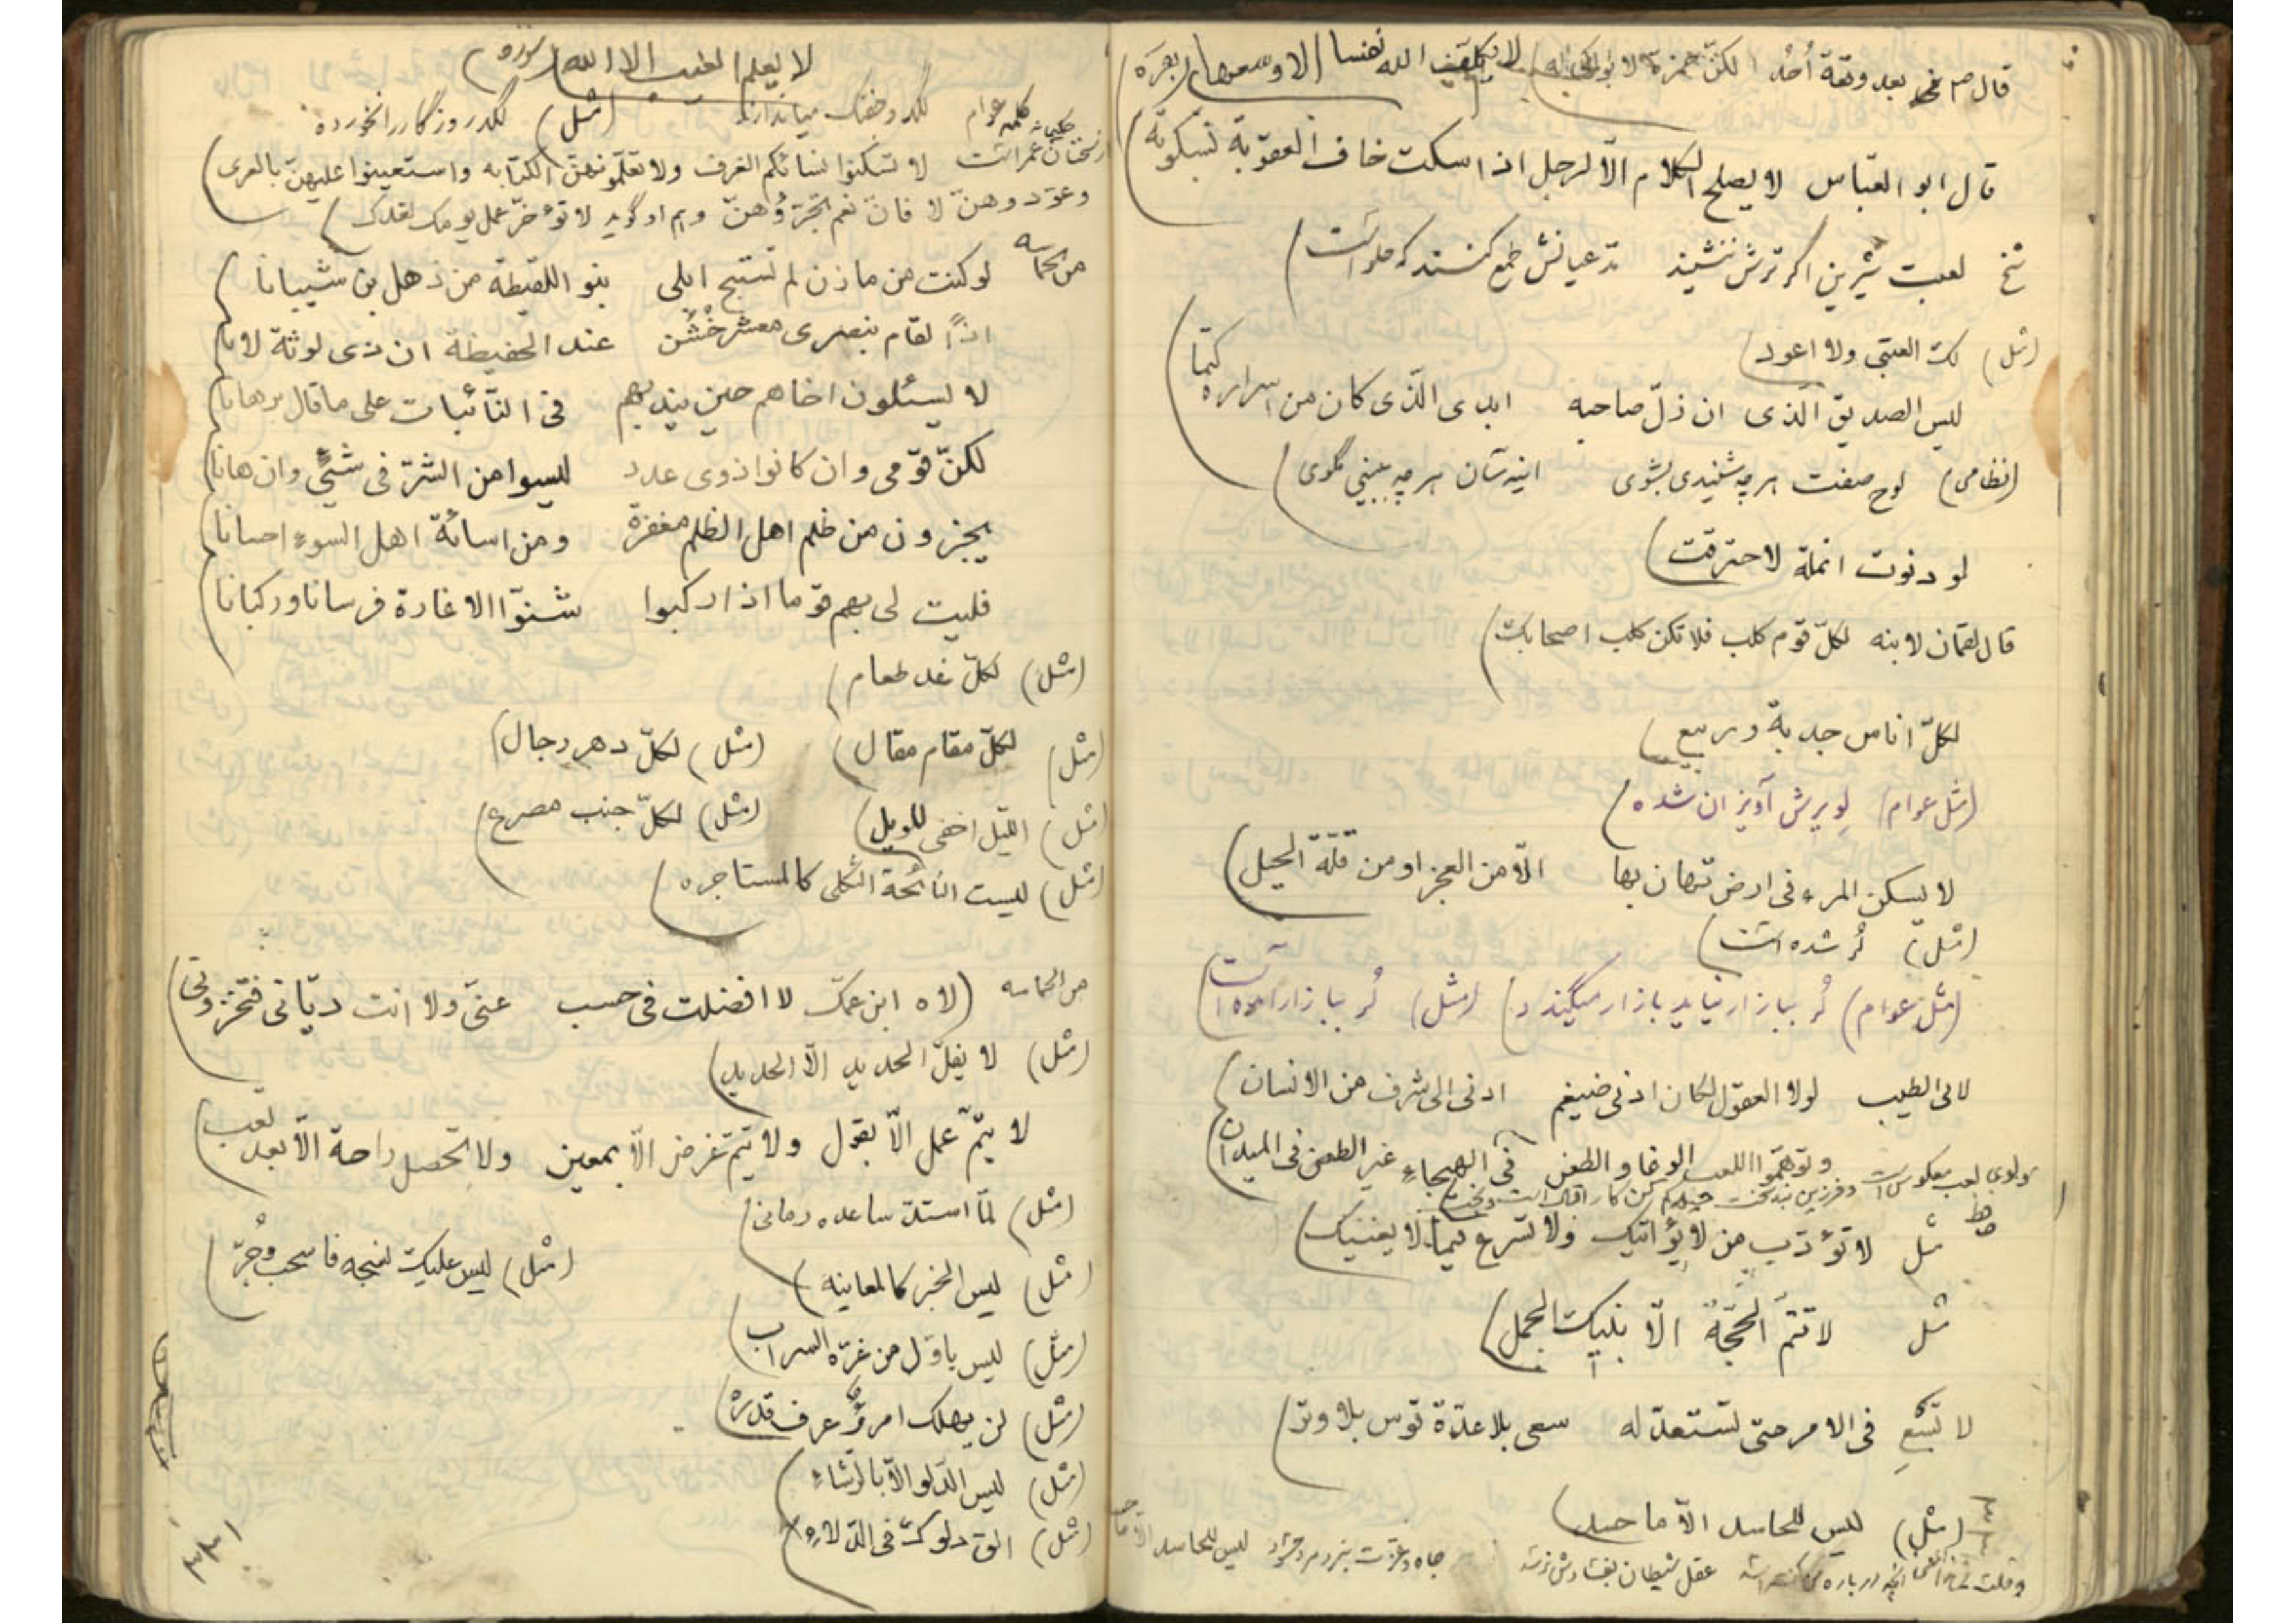 قال ص في بعد وقعة أحد لكنّ حمزة لا بواكي له) لا يكلّف الله نفسا الا وسعها (بقره)
قال ابو العبّاس لا يصلح الكلام الّا لرجل اذا سكت خاف العقوبة بسكوته)
شخ لعبت شیرین اگر ترش ننشیند مدعیانش طمع کنند که حلواست)
(مثل) لك العتبى ولا اعود)
ليس الصديق الّذى ان زلّ صاحبه ابدى الّذى كان من اسراره كتما)
(نظامی) لوح صفت هر چه شنیدی بشوی اینه سان هر چه ببینی مگوی)
لو دنوت انملة لاحترقت)
قال لقمان لابنه لكلّ قوم كلب فلا تكن كلب اصحابك)
لكلّ اناس جدبة وربيع)
(مثل عوام) لویرش آویزان شده)
لا يسكن المرء فى ارض تهان بها الّا من العجز او من قلّة الحيل)
(مثل) لُر شده است)
(مثل عوام) لُر ببازار نیاید بازار میگندد) (مثل) لُر ببازار آمده است)
لابى الطيب لولا العقول لكان ادنى ضيغم ادنى الى شرف من الانسان)
وتوهّموا اللعب الوغا والطعن فى الهيجاء غير الطعن فى الميدان)
مثل لا تؤدّب من لا يؤاتيك ولا تسرع فيما لا يعنيك)
مثل لا تتمّ الحجّة الّا بنيك الجمل)
لا تسع فى الامر حتى تستعدّ له سعى بلا عدّة قوس بلا وتر)
(مثل) ليس للحاسد الّا ما حسد)
عقل شیطان بفشاردش نرسد جاه و عزّت بنزدم رد خواند ليس للحاسد الّا ما حسد
لا يعلم الغيب الا الله (سوره)
كلمه عوام لگد و خفتک میاندازد (مثل) لگد روزگار را نخورده
از سخنان حکیمانه عمر است لا تسكنوا نسائكم الغرف ولا تعلّمونهنّ الكتابه واستعينوا عليهنّ بالعرى
وعوّدوهنّ لا فانّ نعم تجرّؤهنّ وهم او گوید لا تؤخّر عمل يومك لغدك)
من الحماسه لو كنت من مازن لم تستبح ابلى بنو اللقيطة من ذهل بن شيبانا)
اذًا لقام بنصرى معشر خُشُن عند الحفيظة ان ذى لوثة لانا)
لا يسئلون اخاهم حين يندبهم فى النّائبات على ما قال برهانا)
لكنّ قومى وان كانوا ذوى عدد ليسوا من الشرّ فى شئٍ وان هانا)
يجزون من ظلم اهل الظلم مغفرة ومن اسائة اهل السوء احسانا)
فليت لى بهم قوما اذا ركبوا شنوّا الاغارة فرسانا وركبانا
(مثل) لكلّ غد طعام)
(مثل) لكلّ مقام مقال) (مثل) لكلّ دهر رجال)
(مثل) الليل اخفى للويل) (مثل) لكلّ جنب مصرع)
(مثل) ليست النائحة الثكلى كالمستاجره)
من الحماسه (لاه ابن عمّك لا افضلت فى حسب عنّى ولا انت ديّانى فتخزونى)
(مثل) لا يفلّ الحديد الّا الحديد)
لا يتمّ عمل الّا بقول ولا يتم غرض الّا بمعين ولا تحصل راحة الّا بعد تعب)
(مثل) لمّا استدّ ساعده رمانى)
(مثل) ليس الخبر كالمعاينه) (مثل) ليس عليك نسجه فاسحب وجُرّ)
(مثل) ليس باوّل من غرّه السراب)
(مثل) لن يهلك امرؤٌ عرف قدره)
(مثل) ليس الدّلو الّا بالرّشاء)
(مثل) الق دلوك فى الدّلاء)